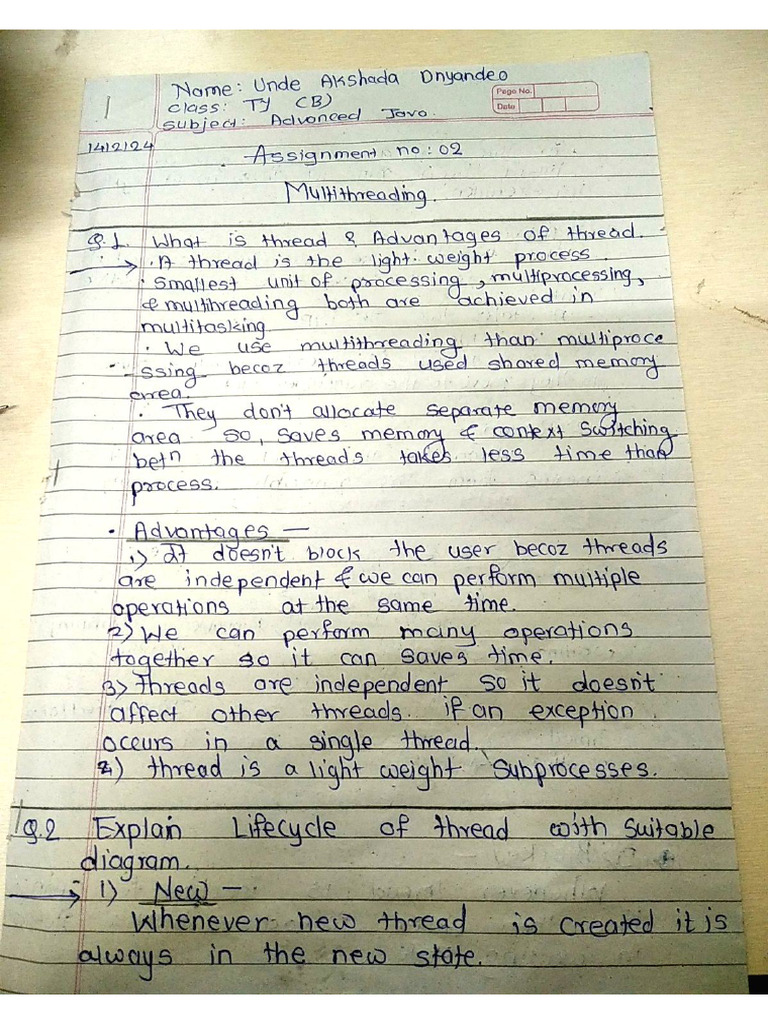 Name: Unde Akshada Dnyandeo
Page No.
class: TY (B)
Date
subject: Advanced Java.
14/2/24
Assignment no: 02
Multithreading.
Q.1. What is thread & Advantages of thread.
· A thread is the light weight process.
· smallest unit of processing, multiprocessing,
& multihreading both are achieved in
multitasking.
· We use multithreading than multiproce
ssing becoz threads used shared memory
area.
· They don't allocate separate memory
area so, saves memory & context switching
betn the threads takes less time than
process.
· Advantages —
1) It doesn't block the user becoz threads
are independent & we can perform multiple
operations at the same time.
2) We can perform many operations
together so it can saves time.
3) Threads are independent so it doesn't
affect other threads. if an exception
occurs in a single thread.
4) thread is a light weight subprocesses.
Q.2 Explain Lifecycle of thread with suitable
diagram.
1) New —
Whenever new thread is created it is
always in the new state.